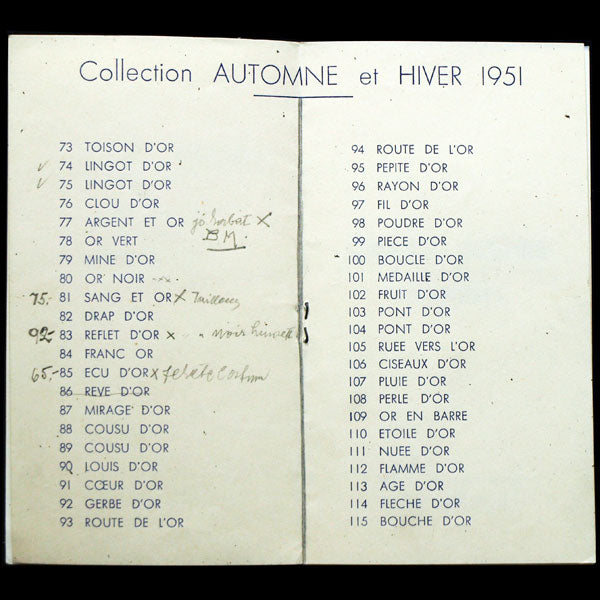 Collection AUTOMNE et HIVER 1951
73 TOISON D'OR
74 LINGOT D'OR
75 LINGOT D'OR
76 CLOU D'OR
77 ARGENT ET OR
BM
78 OR VERT
79 MINE D'OR
80 OR NOIR
75.- 81 SANG ET OR x
82 DRAP D'OR
92- 83 REFLET D'OR x noir
84 FRANC OR
65.- 85 ECU D'OR x
86 REVE D'OR
87 MIRAGE D'OR
88 COUSU D'OR
89 COUSU D'OR
90 LOUIS D'OR
91 CŒUR D'OR
92 GERBE D'OR
93 ROUTE DE L'OR
94 ROUTE DE L'OR
95 PEPITE D'OR
96 RAYON D'OR
97 FIL D'OR
98 POUDRE D'OR
99 PIECE D'OR
100 BOUCLE D'OR
101 MEDAILLE D'OR
102 FRUIT D'OR
103 PONT D'OR
104 PONT D'OR
105 RUEE VERS L'OR
106 CISEAUX D'OR
107 PLUIE D'OR
108 PERLE D'OR
109 OR EN BARRE
110 ETOILE D'OR
111 NUEE D'OR
112 FLAMME D'OR
113 AGE D'OR
114 FLECHE D'OR
115 BOUCHE D'OR